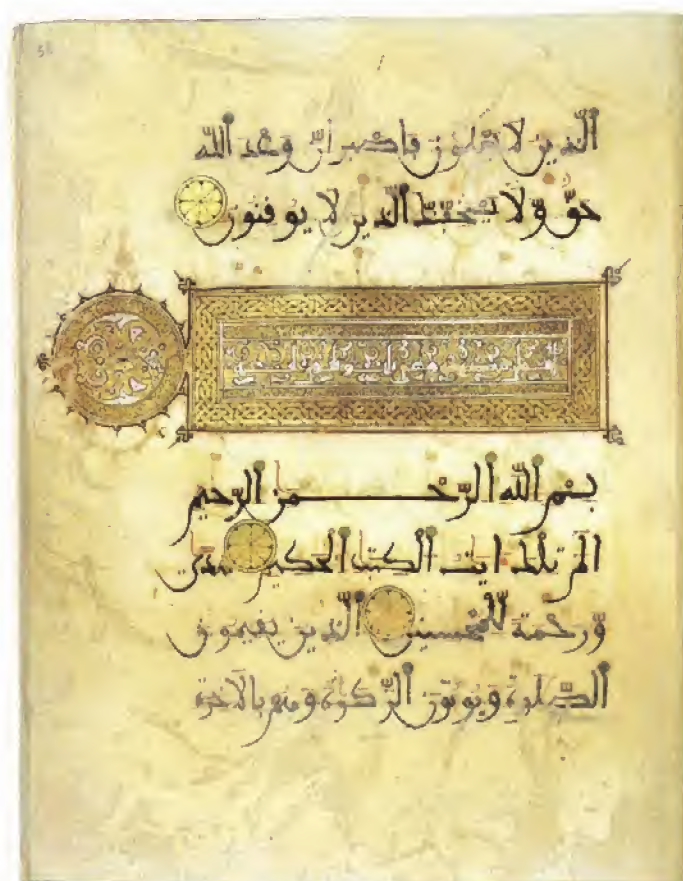 الذين لا يعلمون فاصبر ان وعد الله
حقّ وّلا يستخفنّك الذين لا يوقنون
بسم الله الرّحمن الرّحيم
الم تلك ايت الكتب الحكيم هدى
وّرحمة لّلمحسنين الذين يقيمون
الصّلوة ويوتون الزّكوة وهم بالاخرة